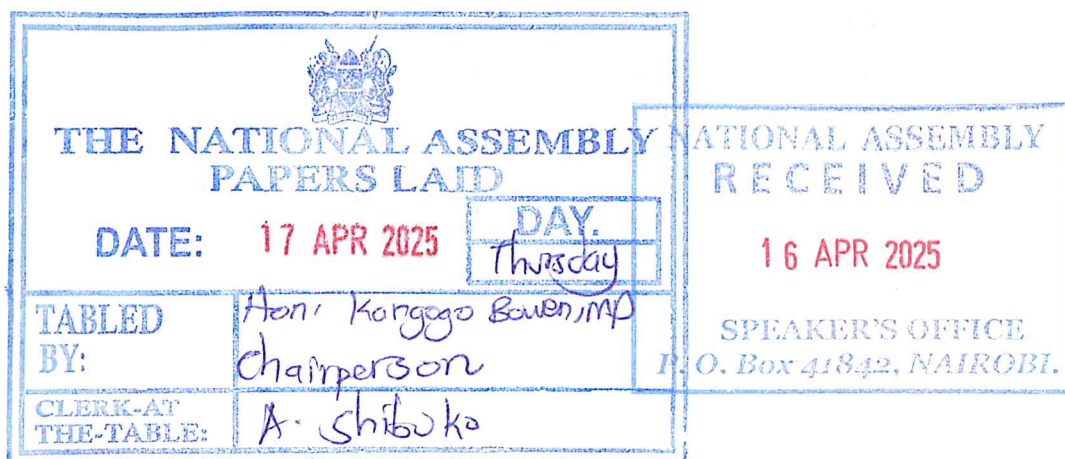 THE NATIONAL ASSEMBLY
PAPERS LAID
DATE: 17 APR 2025
DAY.
Thursday
TABLED BY:
Hon. Kangogo Bowen, MP
Chairperson
CLERK-AT THE-TABLE:
A. Shibuko
NATIONAL ASSEMBLY
RECEIVED
16 APR 2025
SPEAKER'S OFFICE
P. O. Box 41842, NAIROBI.